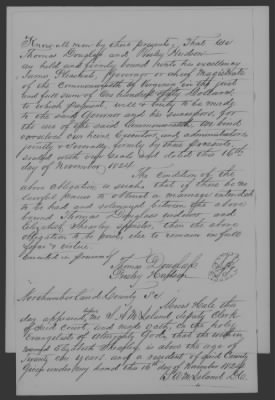 Know all men by these presents, That we
Thomas Douglass and Presley Hudson
are held and firmly bound unto his excellency
James Pleasants, Governor or chief Magistrate
of the Commonwealth of Virginia in the just
and full sum of One hundred & fifty Dollars,
to which payment, well & truly to be made
to the said Governor and his successors, for
the use of the said Commonwealth, we bind
ourselves our heirs, Executors, and administrators,
jointly & severally firmly by these presents,
sealed with our seals and dated this 16th
day of November 1824.
The Condition of the
above obligation is such, that if there be no
lawful cause to obstruct a marriage intended
to be had and solemnized between the above
bound Thomas Douglass widower and
Elizabeth Shearley spinster, then the above
obligation to be void, else to remain in full
force & virtue.
Executed in presence of
Thomas Douglass
Presley Hudson
Northumberland County Sc
Moses Hale this
day appeared before me S. A. M. Leland deputy Clerk
of said Court, and made oath, on the holy
Evangelists of Almighty God, that the within
named Elizabeth Shearley is above the age of
Twenty one years and a resident of said County
Given under my hand this 16th day of November 1824
S. A. M. Leland D.C.